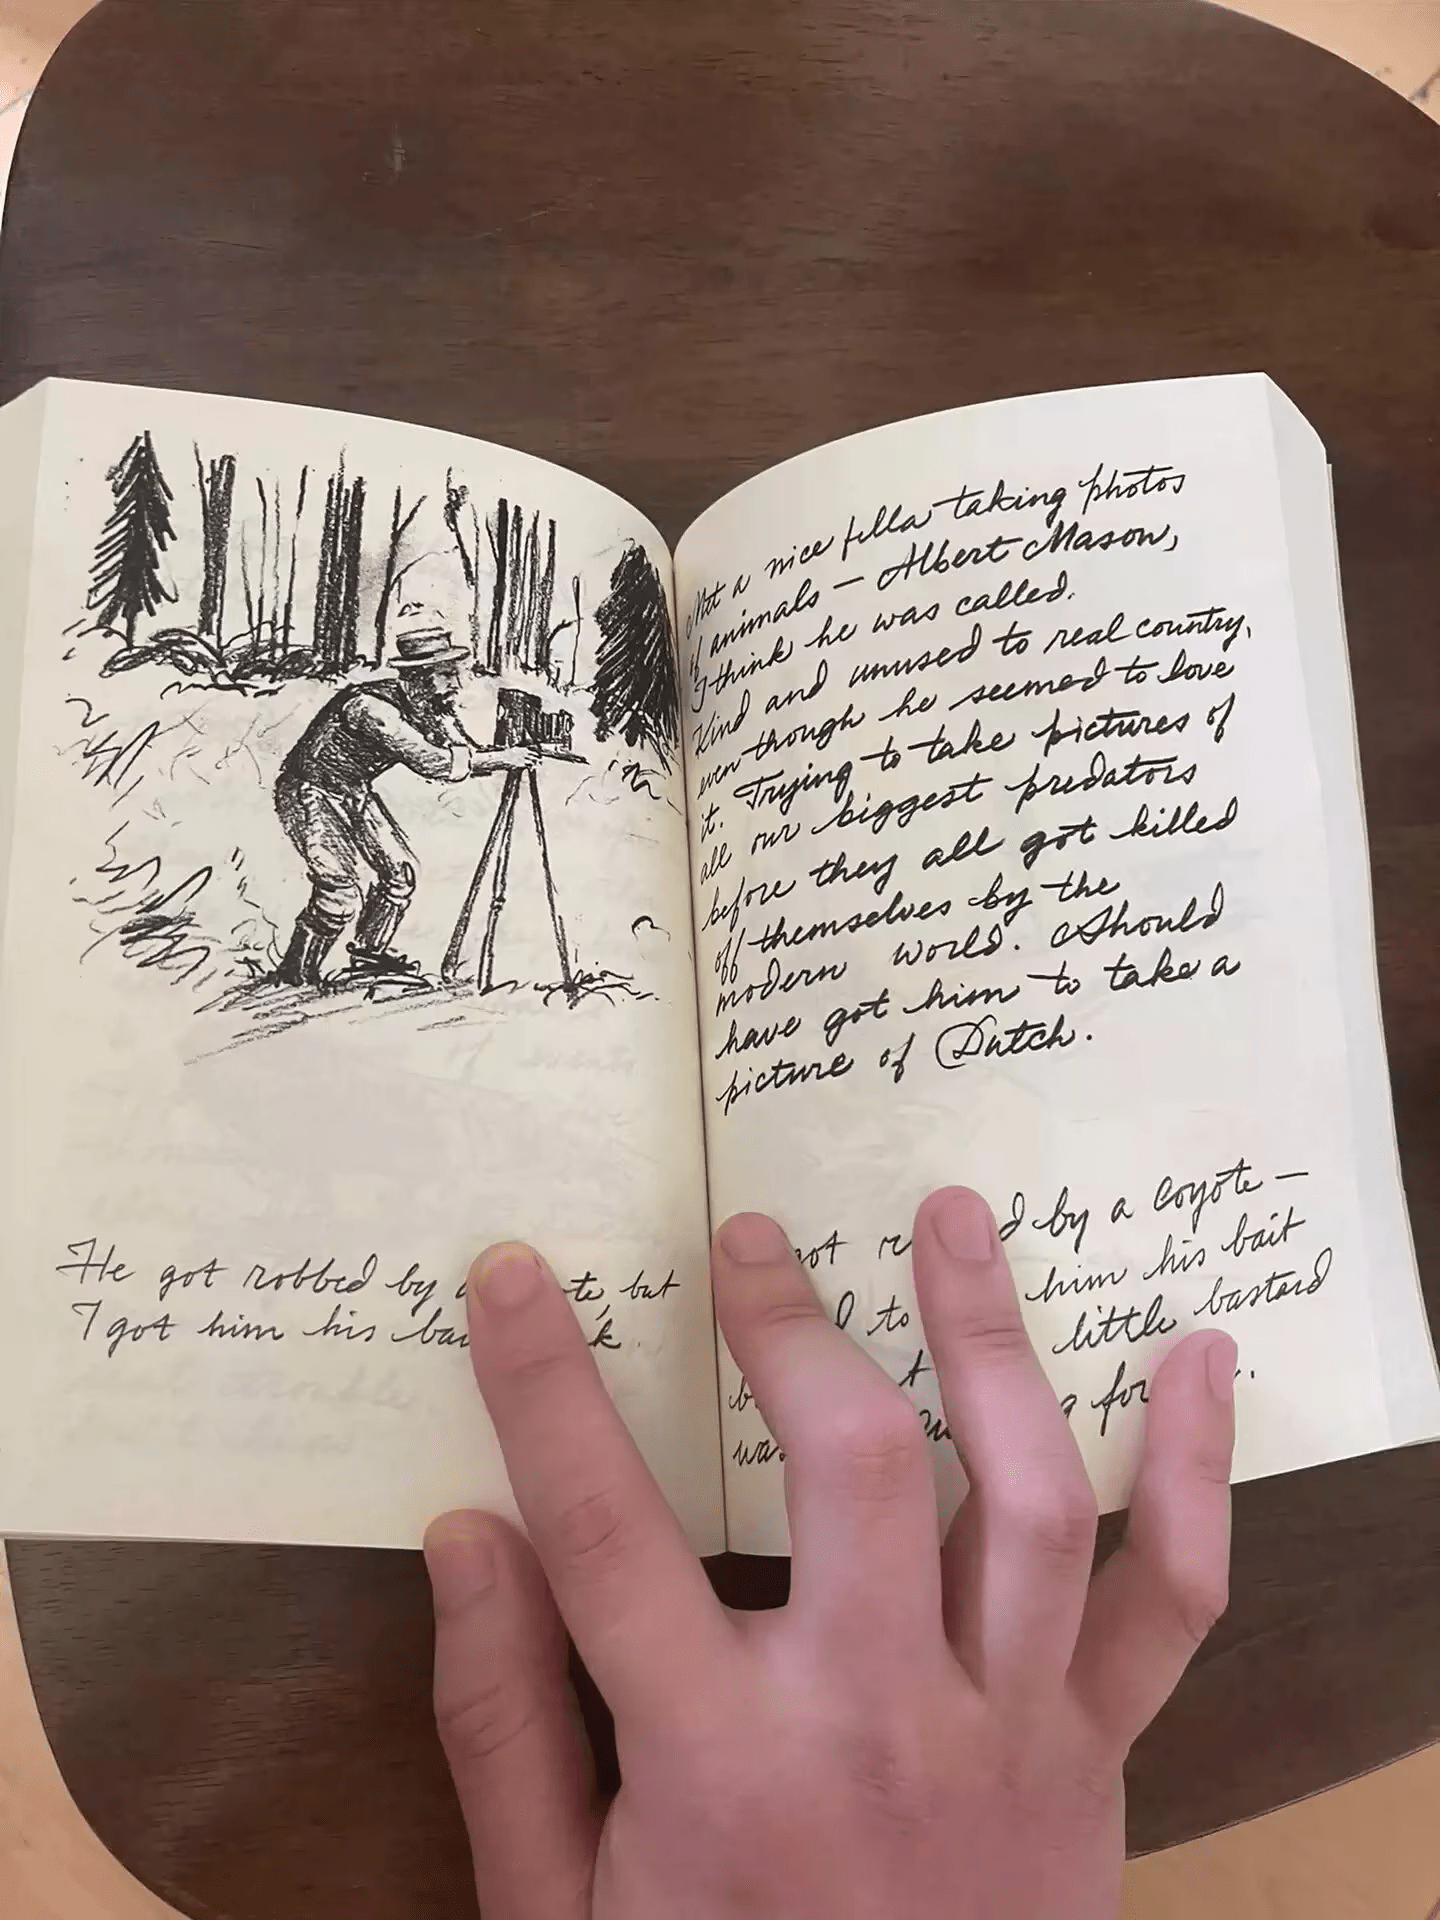 He got robbed by a te, but
I got him his ba k.
Met a nice fella taking photos
of animals – Albert Mason,
I think he was called.
Kind and unused to real country,
even though he seemed to love
it. Trying to take pictures of
all our biggest predators
before they all got killed
off themselves by the
modern world. Should
have got him to take a
picture of Dutch.
got r d by a coyote –
to him his bait
little bastard
was g for